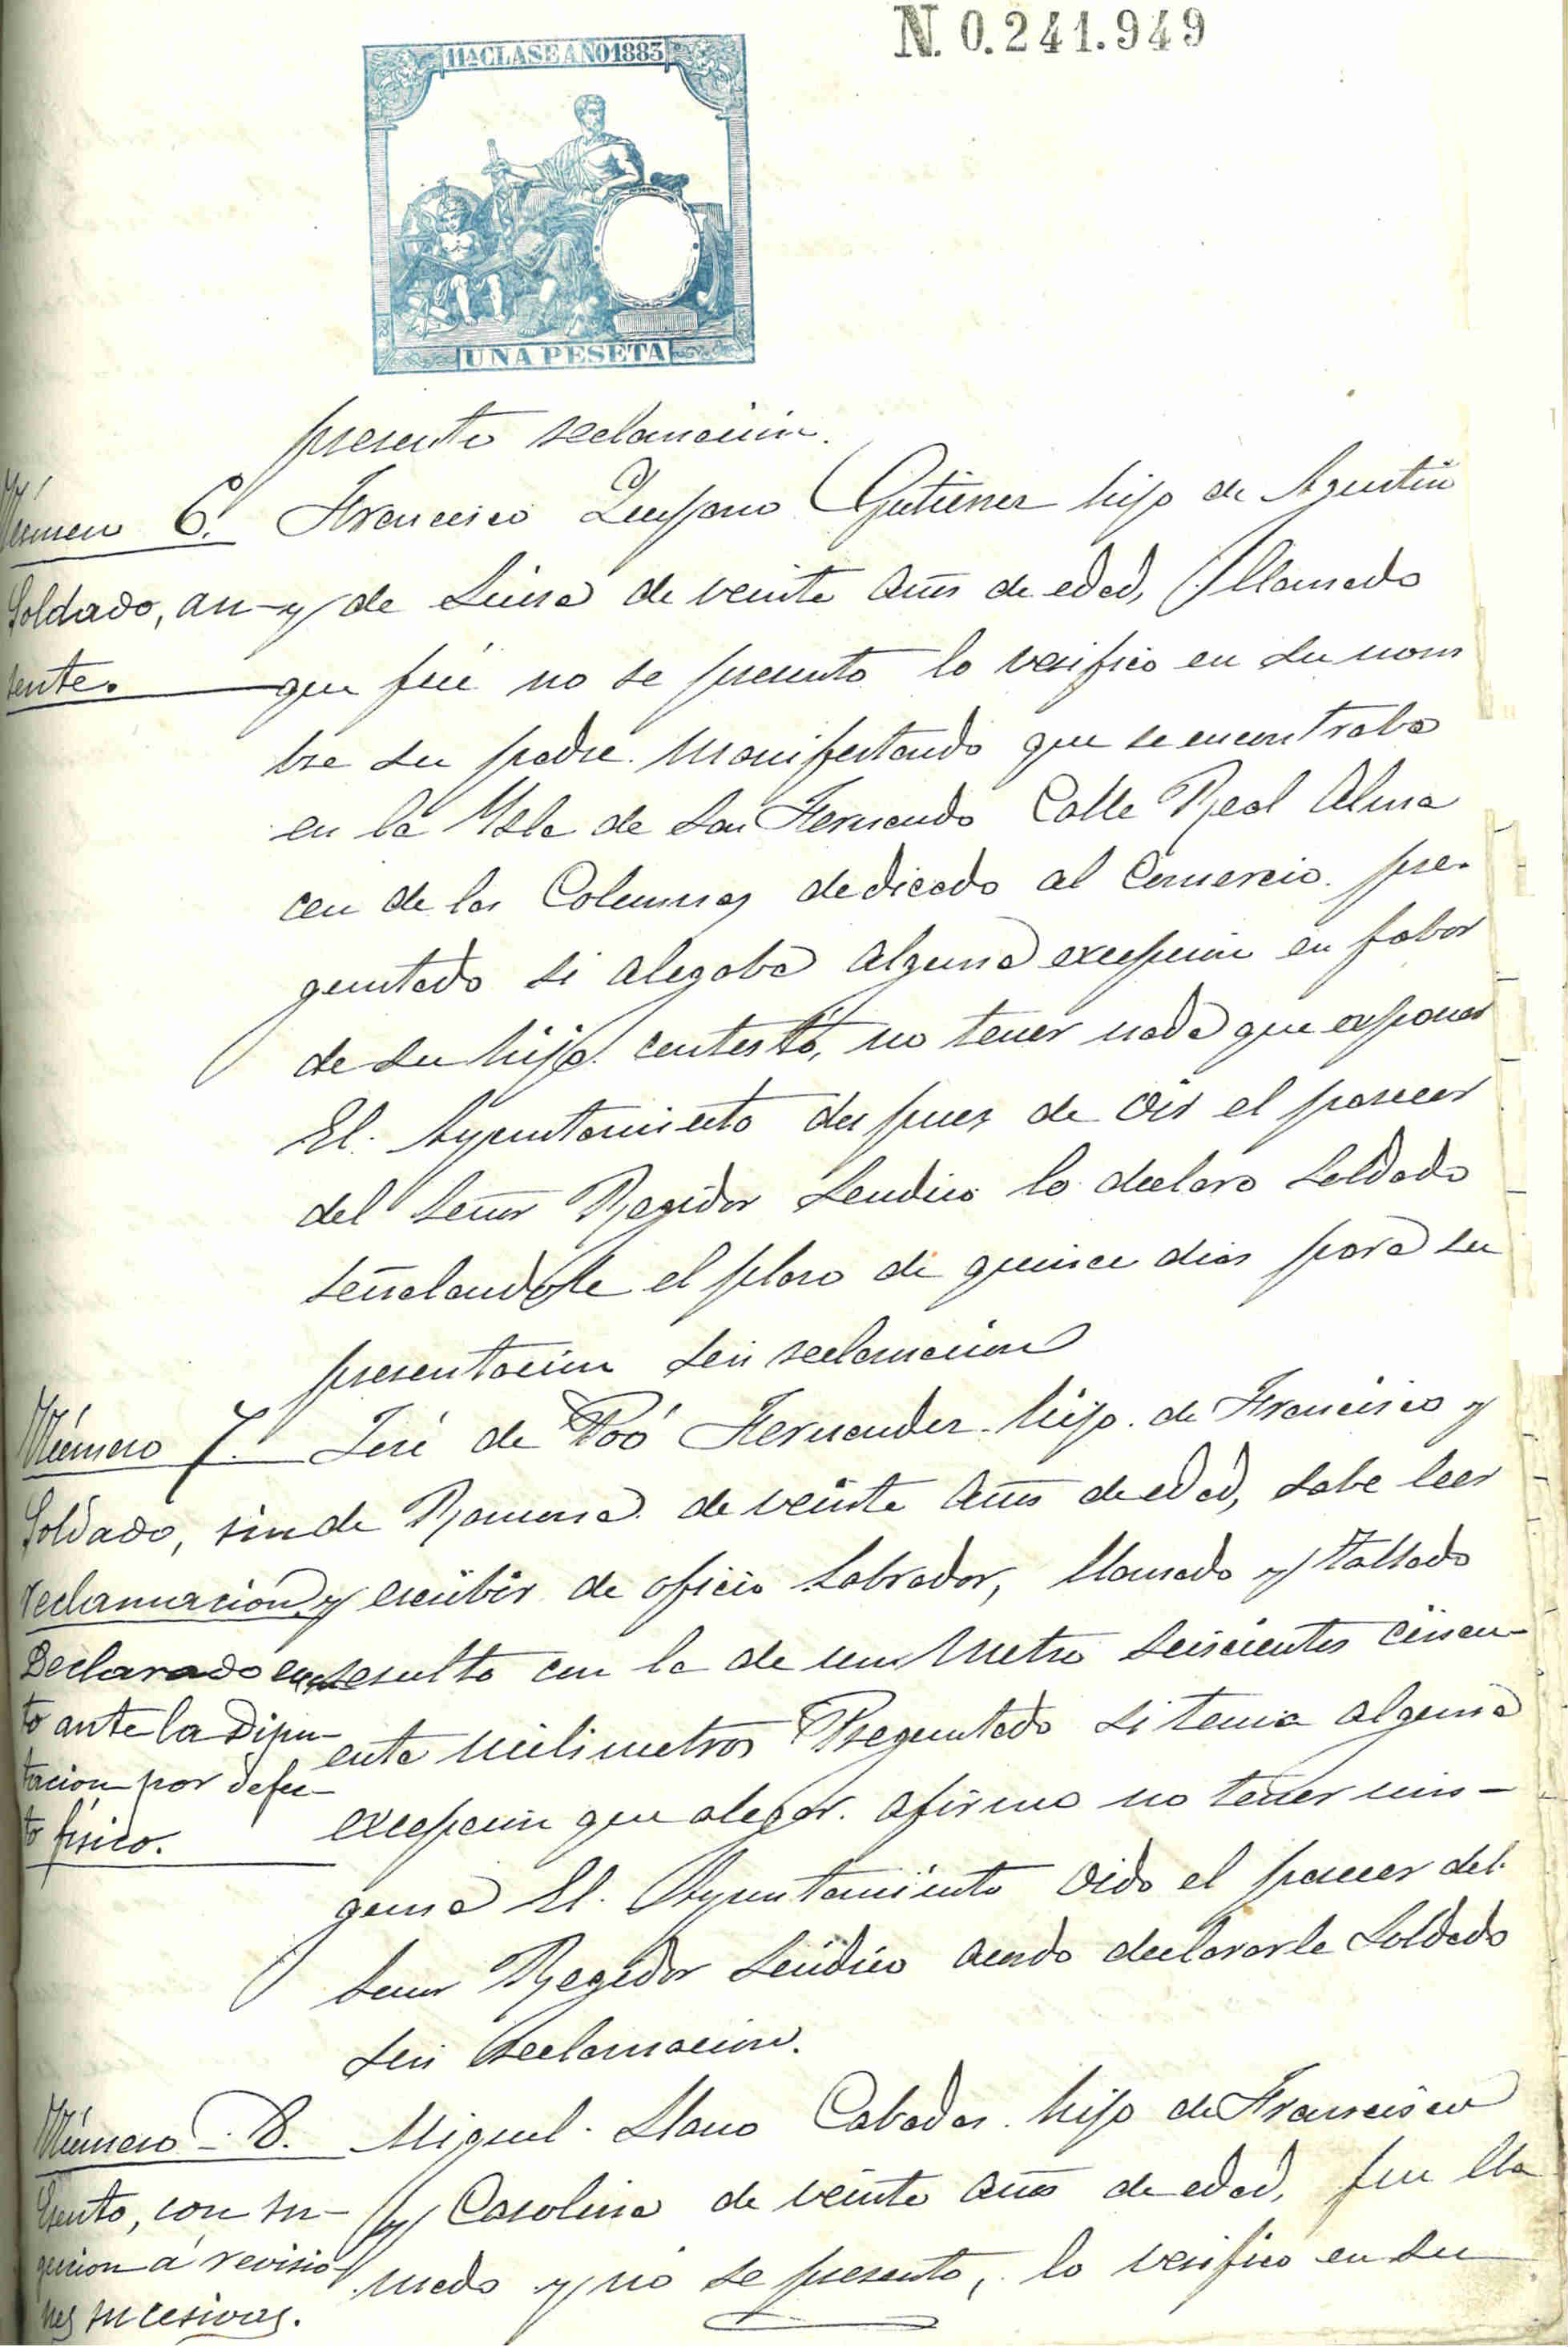 N. 0.241.949
11ª CLASE AÑO 1883
UNA PESETA
presente reclamacion.
Número 6.º
Soldado, au-
sente.
Francisco Quijano Gutierrez hijo de Agustin
y de Luisa de veinte años de edad, llamado
que fué no se presento lo verifico en su nom
bre su padre. Manifestando que se encontraba
en la Ysla de San Fernando Calle Real Alma
cen de las Columnas dedicado al Comercio. pre-
guntado si alegaba alguna excepcion en fabor
de su hijo. contestó, no tener nada que exponer
El. Ayuntamiento despues de oir el parecer
del Señor Regidor Sendico lo declaro Soldado
señalandole el plaso de quince dias para su
presentacion sin reclamacion
Número 7.
Soldado, sin
reclamacion.
Declarado exen
to ante la Dipu-
tacion por defec-
to físico.
José de Poó Fernandez. hijo. de Francisco y
de Ramona. de veinte años de edad, sabe leer
y escribir de oficio Labrador, llamado y tallado
resulto con la de un Metro seiscientos cincu-
enta milimetros Preguntado si tenia alguna
excepcion que alegar. afirmo no tener nin-
guna El. Ayuntamiento oido el parecer del
Señor Regidor Sindico acordo declararle Soldado
sin reclamacion.
Número - 8.
Esento, con su-
gecion á revisio-
nes sucesivas.
Miguel. Llano Cabadas. hijo de Francisco
y Carolina de veinte años de edad, fue lla
mado y no se presento, lo verifico en su